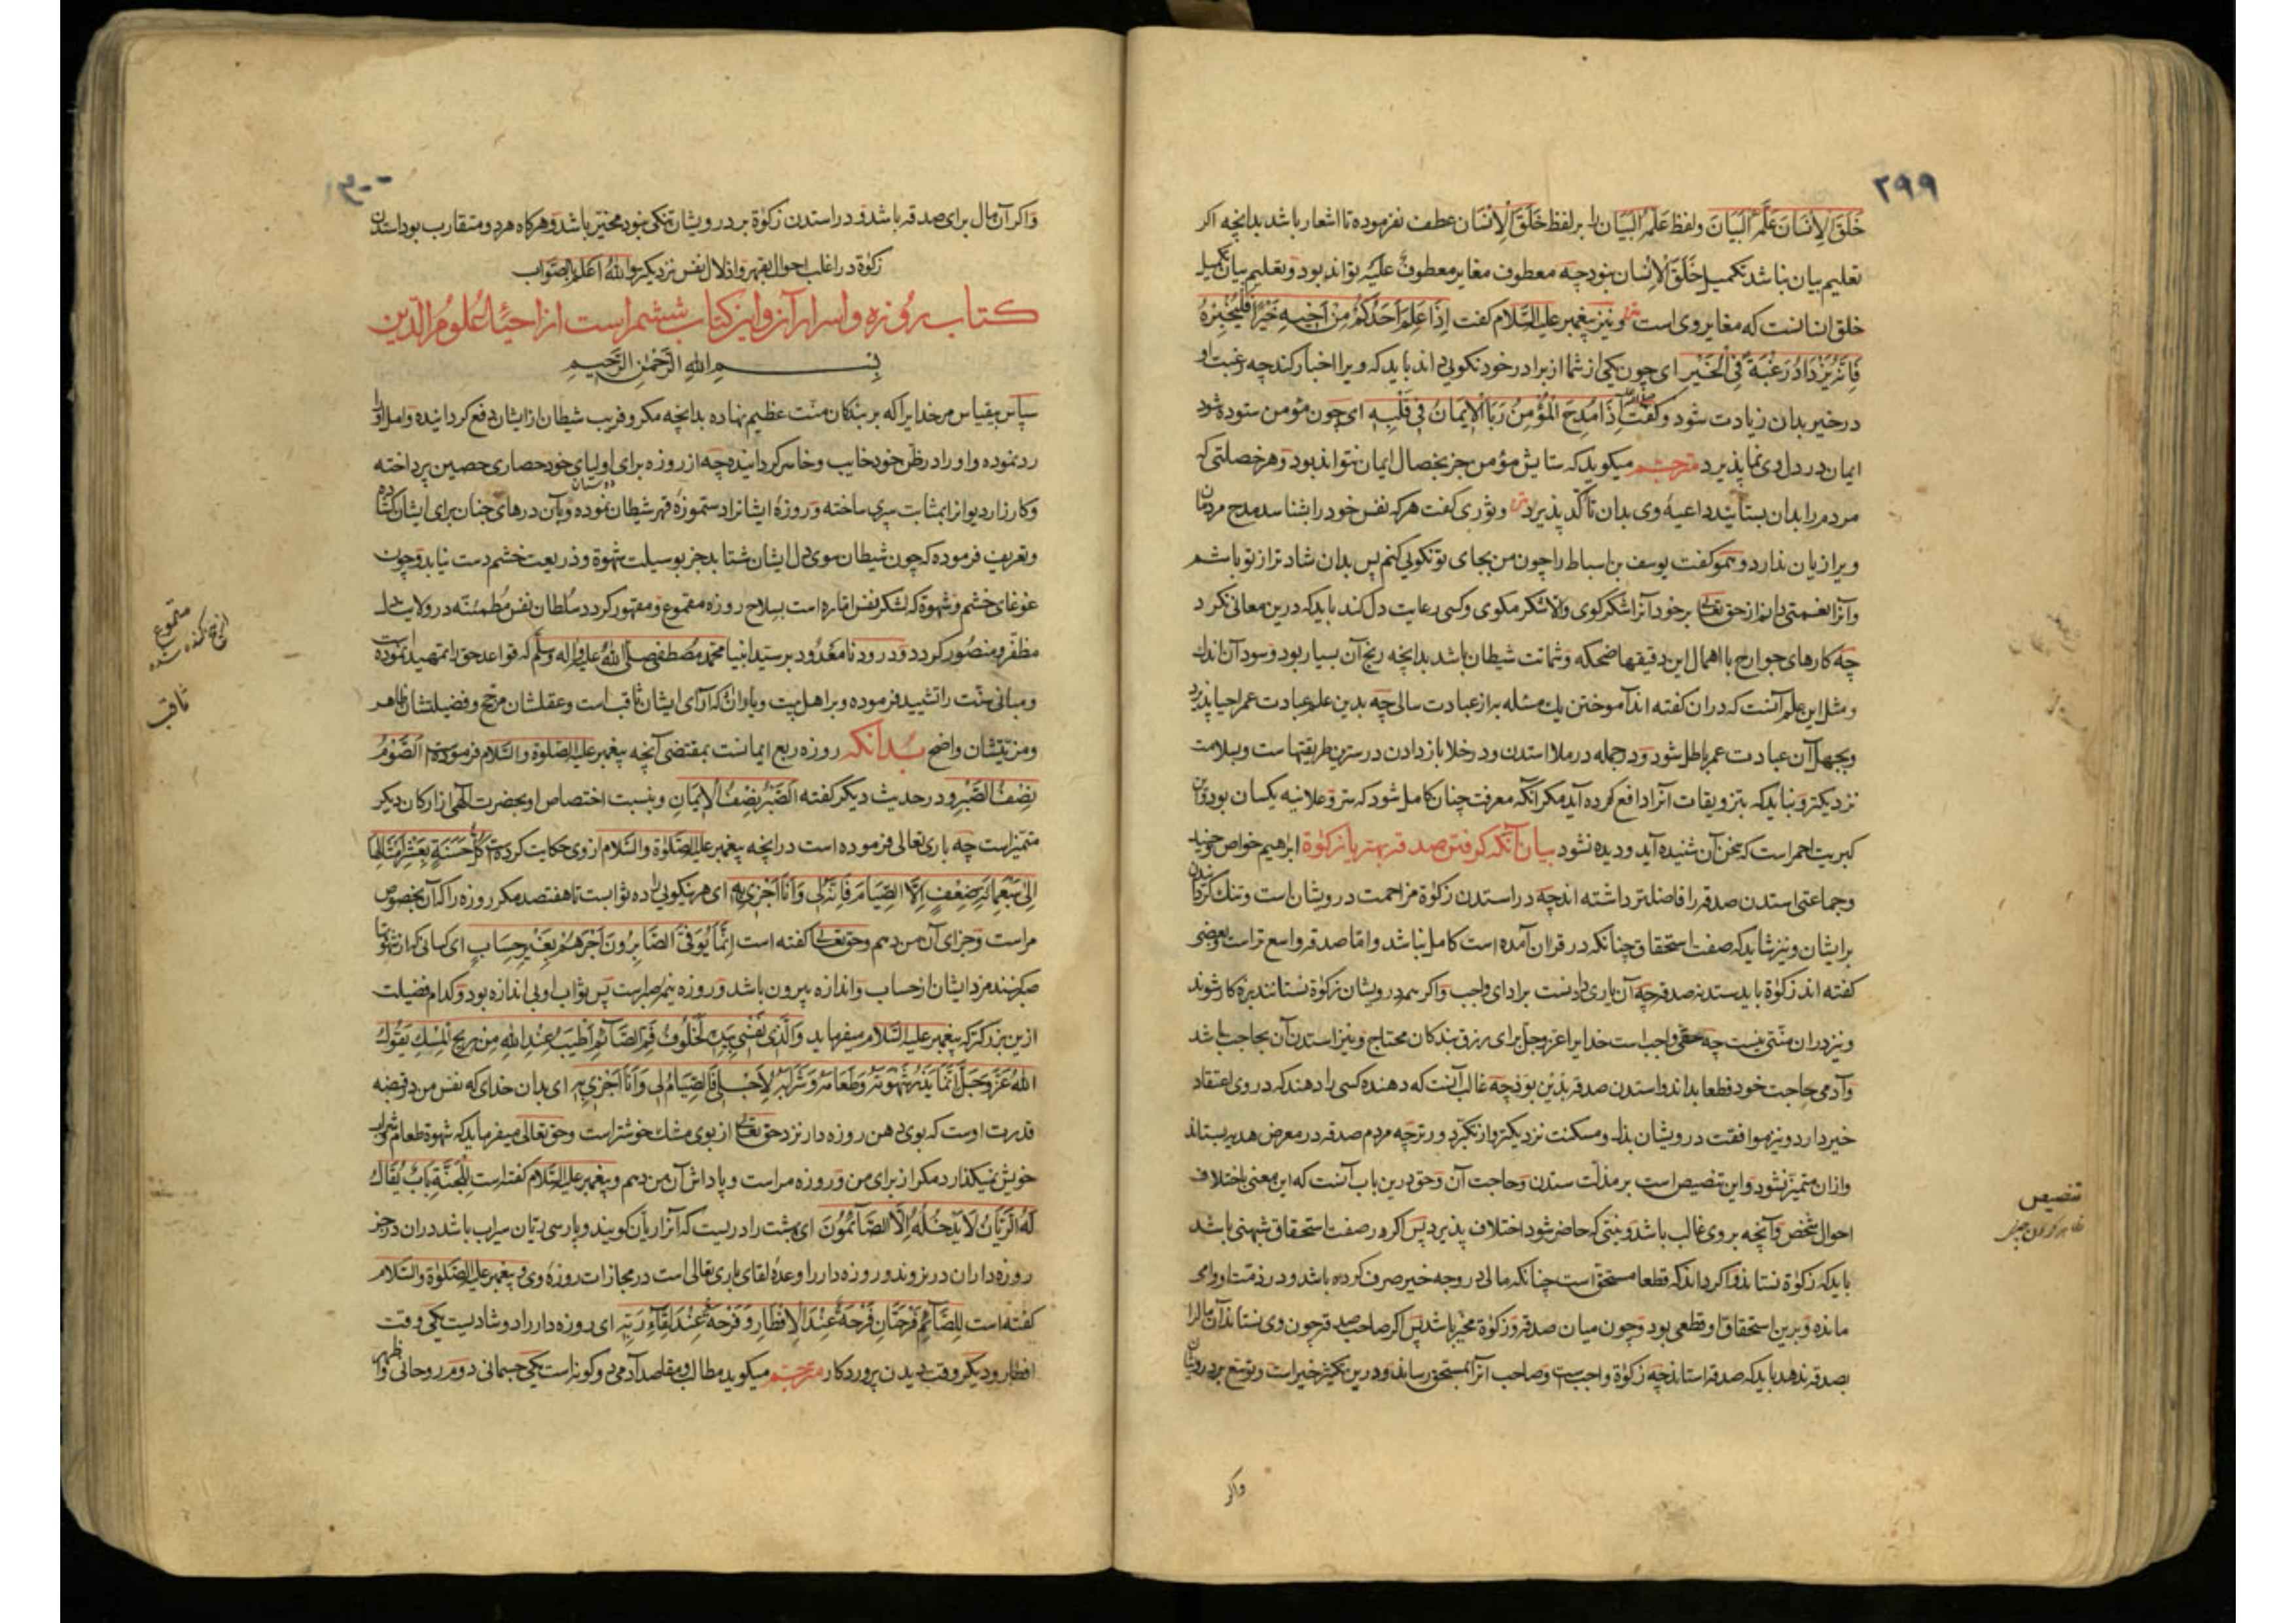 ۲۹۹
خَلَقَ الْاِنْسَانَ عَلَّمَهُ الْبَيَانَ ولفظ عَلَّمَهُ الْبَيَانَ را بر لفظ خَلَقَ الْاِنْسَانَ عطف نفرموده تا اشعار باشد بدانچه اكر
تعليم بيان نباشد تكميل خَلَقَ الْاِنْسَان نبود چه معطوف مغاير معطوف عليه تواند بود و تعليم بيان تكميل
خلق انسانست كه مغاير وى است ونيز پيغمبر عليه السّلام كفت اِذَا عَلِمَ اَحَدُكُمْ مِنْ اَخِيهِ خَيْرًا فَلْيُخْبِرْهُ
فَاِنَّهُ يَزْدَادُ رَغْبَةً فِى الْخَيْرِ اى چون يكى از شما از برادر خود نكويى داند بايد كه ويرا اخبار كند چه رغبت او
در خير بدان زيادت شود وكفت اِذَا مُدِحَ الْمُؤْمِنُ رَبَا الْاِيمَانُ فِى قَلْبِهِ اى چون مؤمن ستوده شود
ايمان در دل وى نما پذيرد مترجم ميكويد كه ستايش مؤمن جز بخصال ايمان نتواند بود وهر خصلتى كه
مردم را بدان بستايند داعيهٔ وى بدان تأكّد پذيرد وثورى كفت هر كه نفس خود را بشناسد مدح مردمان
ويرا زيان ندارد وهمو كفت يوسف بن اسباط را چون من بجاى تو نكويى كنم پس بدان شادتر از تو باشم
وآنرا نعمتى دانم از حق تعالى بر خود آنرا شكر كوى والا شكر مكوى وكسى رعايت دل كند بايد كه درين معانى نكرد
چه كارهاى جوارح با اهمال اين دقيقها ضحكه وشماتت شيطان باشد بدانچه رنج آن بسيار بود وسود آن اندك
ومثل اين علم آنست كه دران كفته اند آموختن يك مسئله به از عبادت سالى چه بدين علم عبادت عمر احيا پذيرد
وبجهل آن عبادت عمر باطل شود ودر جمله در ملا استدن ودر خلا باز دادن درسترين طريقتهاست وبسلامت
نزديكتر ونبايد كه بتزويقات آنرا دافع كرده آيد مكر آنكه معرفت چنان كامل شود كه سرّ وعلانيه يكسان بود وآن
كبريت احمر است كه سخن آن شنيده آيد وديده نشود بيان آنكه كرفتن صدقه بهتر يا زكوة ابراهيم خواص جنيد
وجماعتى استدن صدقه را فاضلتر داشته اند چه در استدن زكوة مزاحمت درويشان است وتنك كردانيدن
بر ايشان ونيز شايد كه صفت استحقاق چنانكه در قران آمده است كامل نباشد واما صدقه واسع تر است وبعضى
كفته اند زكوة بايد ستد نه صدقه چه آن يارى دادنست بر اداى واجب واكر همه درويشان زكوة نستانند بزه كار شوند
ونيز دران منّتى نيست چه حقى واجب است خدايرا عزوجل براى رزق بندكان محتاج ونيز استدن آن بحاجت باشد
وآدمى حاجت خود قطعا بداند واستدن صدقه بدين بود چه غالب آنست كه دهنده كسى را دهد كه در وى اعتقاد
خير دارد ونيز موافقت درويشان بذل ومسكنت نزديكتر واز تكبر دورتر چه مردم صدقه در معرض هديه بستاند
وازان متميز نشود واين تنصيص است بر مذلّت ستدن وحاجت آن وحق درين باب آنست كه اين معنى باختلاف
احوال شخص وآنچه بر وى غالب باشد ونيتى كه حاضر شود اختلاف پذيرد پس اكر در صفت استحقاق شبهتى باشد
بايد كه زكوة نستاند واكر داند كه قطعا مستحق است چنانكه مالى در وجه خير صرف كرده باشد ودر ذمت او وامى
مانده وبرين استحقاق او قطعى بود وچون ميان صدقه وزكوة مخيّر باشد پس اكر صاحب صدقه چون وى نستاند آن مال را
بصدقه ندهد بايد كه صدقه استاند چه زكوة واجب است وصاحب آنرا بمستحق رساند ودرين تكثير خيرات وتوسّع بر درويشان
واكر
تنصيص
ظاهر كردن چيزى
۳۰۰
واكر آن مال براى صدقه باشد ودر استدن زكوة بر درويشان تنكى نبود مخيّر باشد وهركاه هر دو متقارب بود استدن
زكوة در اغلب احوال بقهر واذلال نفس نزديكتر والله اعلم بالصّواب
كتاب روزه واسرار آن واين كتاب ششم است از احياء علوم الدين
بسم الله الرّحمن الرّحيم
سپاس بيقياس مر خدايرا كه بر بندكان منّت عظيم نهاده بدانچه مكر وفريب شيطان از ايشان دفع كردانيده وامل او را
رد نموده واو را در ظن خود خايب وخاسر كردانيده چه از روزه براى اولياى خود حصارى حصين پرداخته
دوستان
وكارزار ديو را بمثابت سپرى ساخته وروزهٔ ايشانرا دستموزهٔ قهر شيطان نموده وبآن درهاى جنان براى ايشان كشاده
وتعريف فرموده كه چون شيطان سوى دل ايشان شتابد جز بوسيلت شهوة وذريعت خشم دست نيابد وچون
غوغاى خشم وشهوة كه لشكر نفس اماره است بسلاح روزه مقموع ومقهور كردد سلطان نفس مطمئنّه در ولايت دل
مظفّر ومنصور كردد ودرود نامعدود بر سيّد انبيا محمد مصطفى صلّى الله عليه وآله وسلّم كه قواعد حق را تمهيد نموده
ومبانى سنّت را تشييد فرموده وبر اهل بيت وياران كه آراى ايشان ثاقب است وعقلشان مرجّح وفضيلتشان ظاهر
ومزيّتشان واضح بدانكه روزه ربع ايمانست بمقتضى آنچه پيغمبر عليه الصّلوة والسّلام فرموده الصَّوْمُ
نِصْفُ الصَّبْرِ ودر حديث ديكر كفته اَلصَّبْرُ نِصْفُ الْاِيمَانِ وبنسبت اختصاص او بحضرت الهى از اركان ديكر
متميز است چه بارى تعالى فرموده است در آنچه پيغمبر عليه الصّلوة والسّلام از وى حكايت كرده كُلُّ حَسَنَةٍ بِعَشْرِ اَمْثَالِهَا
اِلَى سَبْعِمِائَةِ ضِعْفٍ اِلَّا الصِّيَامَ فَاِنَّهُ لِى وَاَنَا اَجْزِى بِهِ اى هر نيكويى را ده ثوابست تا هفتصد مكر روزه را كه آن بخصوص
مراست وجزاى آن من دهم وحق تعالى كفته است اِنَّمَا يُوَفَّى الصَّابِرُونَ اَجْرَهُمْ بِغَيْرِ حِسَابٍ اى كسانى كه از شهوتها
صبر كنند مزد ايشان از حساب واندازه بيرون باشد وروزه نيم صبرست پس ثواب او بى اندازه بود وكدام فضيلت
ازين بزركتر كه پيغمبر عليه السّلام ميفرمايد وَالَّذِى نَفْسِى بِيَدِهِ لَخُلُوفُ فَمِ الصَّائِمِ اَطْيَبُ عِنْدَ اللهِ مِنْ رِيحِ الْمِسْكِ يَقُولُ
اللهُ عَزَّ وَجَلَّ اِنَّمَا يَذَرُ شَهْوَتَهُ وَطَعَامَهُ وَشَرَابَهُ لِاَجْلِى فَالصِّيَامُ لِى وَاَنَا اَجْزِى بِهِ اى بدان خداى كه نفس من در قبضه
قدرت اوست كه بوى دهن روزه دار نزد حق تعالى از بوى مشك خوشتر است وحق تعالى ميفرمايد كه شهوة طعام وشراب
خويش نميكذارد مكر از براى من وروزه مراست وپاداش آن من دهم وپيغمبر عليه السّلام كفته است لِلْجَنَّةِ بَابٌ يُقَالُ
لَهُ الرَّيَّانُ لَا يَدْخُلُهُ اِلَّا الصَّائِمُونَ اى بهشت را دريست كه آنرا ريّان كويند وپارسى ريّان سيراب باشد دران در جز
روزه داران در نروند وروزه دار را وعدهٔ لقاى بارى تعالى است در مجازات روزهٔ وى وپيغمبر عليه الصّلوة والسّلام
كفته است لِلصَّائِمِ فَرْحَتَانِ فَرْحَةٌ عِنْدَ الْاِفْطَارِ وَفَرْحَةٌ عِنْدَ لِقَاءِ رَبِّهِ اى روزه دار را دو شاديست يكى وقت
افطار وديكر وقت ديدن پروردكار مترجم ميكويد مطالب ومقاصد آدمى دو كونه است يكى جسمانى دوم روحانى
مقموع
كنده شده
ثاقب